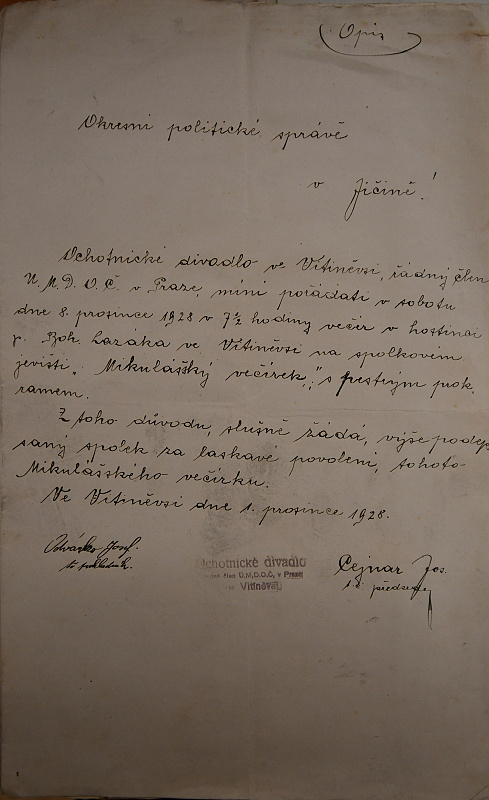 Opis
Okresní politické správě
v Jičíně!
Ochotnické divadlo ve Vitiněvsi, řádný člen
Ú. M. D. O. Č. v Praze, míní pořádati v sobotu
dne 8. prosince 1928 v 7½ hodiny večer v hostinci
p. Boh. Lazáka ve Vitiněvsi na spolkovém
jevišti „Mikulášský večírek", s pestrým prok.
ramem.
Z toho důvodu, slušně žádá, výše podep
saný spolek za laskavé povolení, tohoto
Mikulášského večírku.
Ve Vitiněvsi dne 1. prosince 1928.
Josef.
Ochotnické divadlo
člen Ú.M.D.O.Č. v Praze
Vitiněvsi
Cejnar Jos.
t. č. předseda